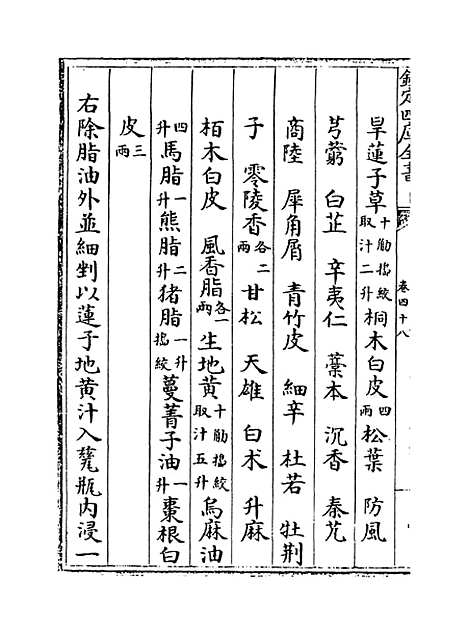 欽定四庫全書
卷四十八
旱蓮子草十觔搗絞取汁二升桐木白皮四兩松葉　防風
芎藭　白芷　辛夷仁　藁本　沉香　秦艽
商陸　犀角屑　青竹皮　細辛　杜若　牡荆
子　零陵香各二兩甘松　天雄　白术　升麻
栢木白皮　風香脂各一兩生地黄十觔搗絞取汁五升烏麻油
四升馬脂一升熊脂二升猪脂一升搗絞蔓菁子油一升棗根白
皮三兩
右除脂油外並細剉以蓮子地黄汁入甆瓶内浸一